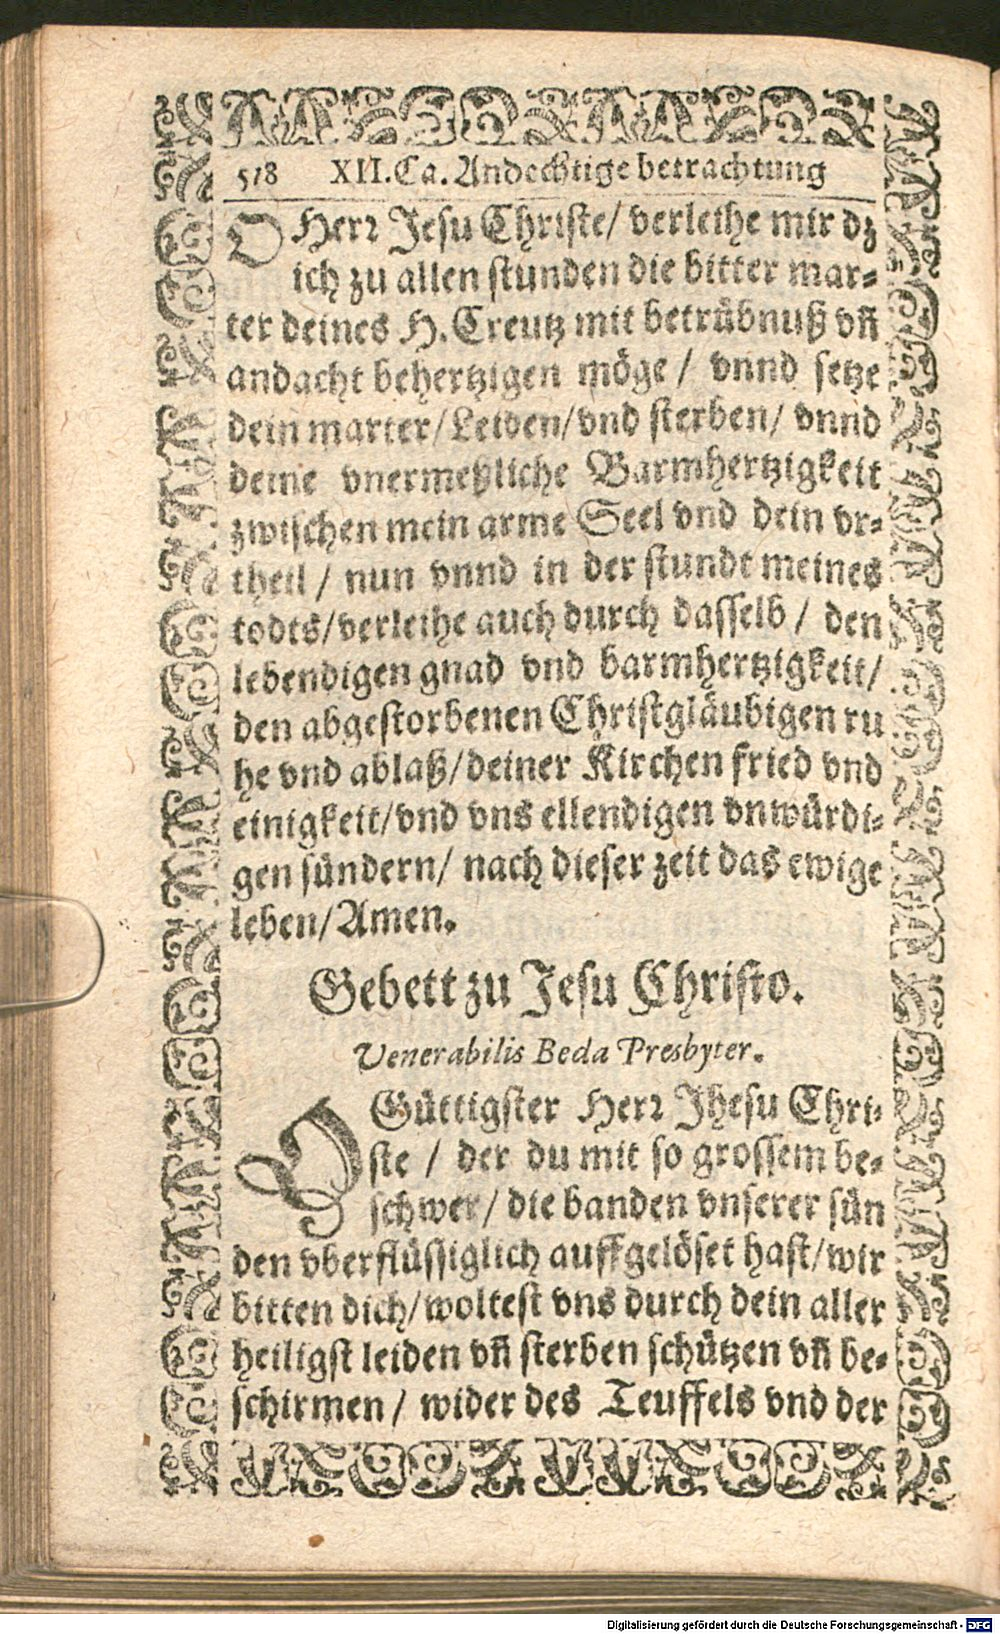 518 XII. Ca. Andechtige betrachtung
O Herr Jesu Christe/ verleihe mir dz
ich zu allen stunden die bitter mar-
ter deines H. Creutz mit betrübnuß vñ
andacht behertzigen möge / vnnd setze
dein marter/Leiden/vnd sterben/ vnnd
deine vnermeßliche Barmhertzigkeit
zwischen mein arme Seel vnd dein vr-
theil / nun vnnd in der stundt meines
todts/verleihe auch durch dasselb / den
lebendigen gnad vnd barmhertzigkeit/
den abgestorbenen Christgläubigen ru
he vnd ablaß/deiner Kirchen fried vnd
einigkeit/vnd vns ellendigen vnwürdi-
gen sündern/ nach dieser zeit das ewige
leben/Amen.
Gebett zu Jesu Christo.
Venerabilis Beda Presbyter.
O Güttigster Herr Jhesu Chri-
ste / der du mit so grossem be-
schwer/ die banden vnserer sün
den vberflüssiglich auffgelöset hast/wir
bitten dich/woltest vns durch dein aller
heiligst leiden vñ sterben schützen vñ be-
schirmen / wider des Teuffels vnd der
Digitalisierung gefördert durch die Deutsche Forschungsgemeinschaft - DFG